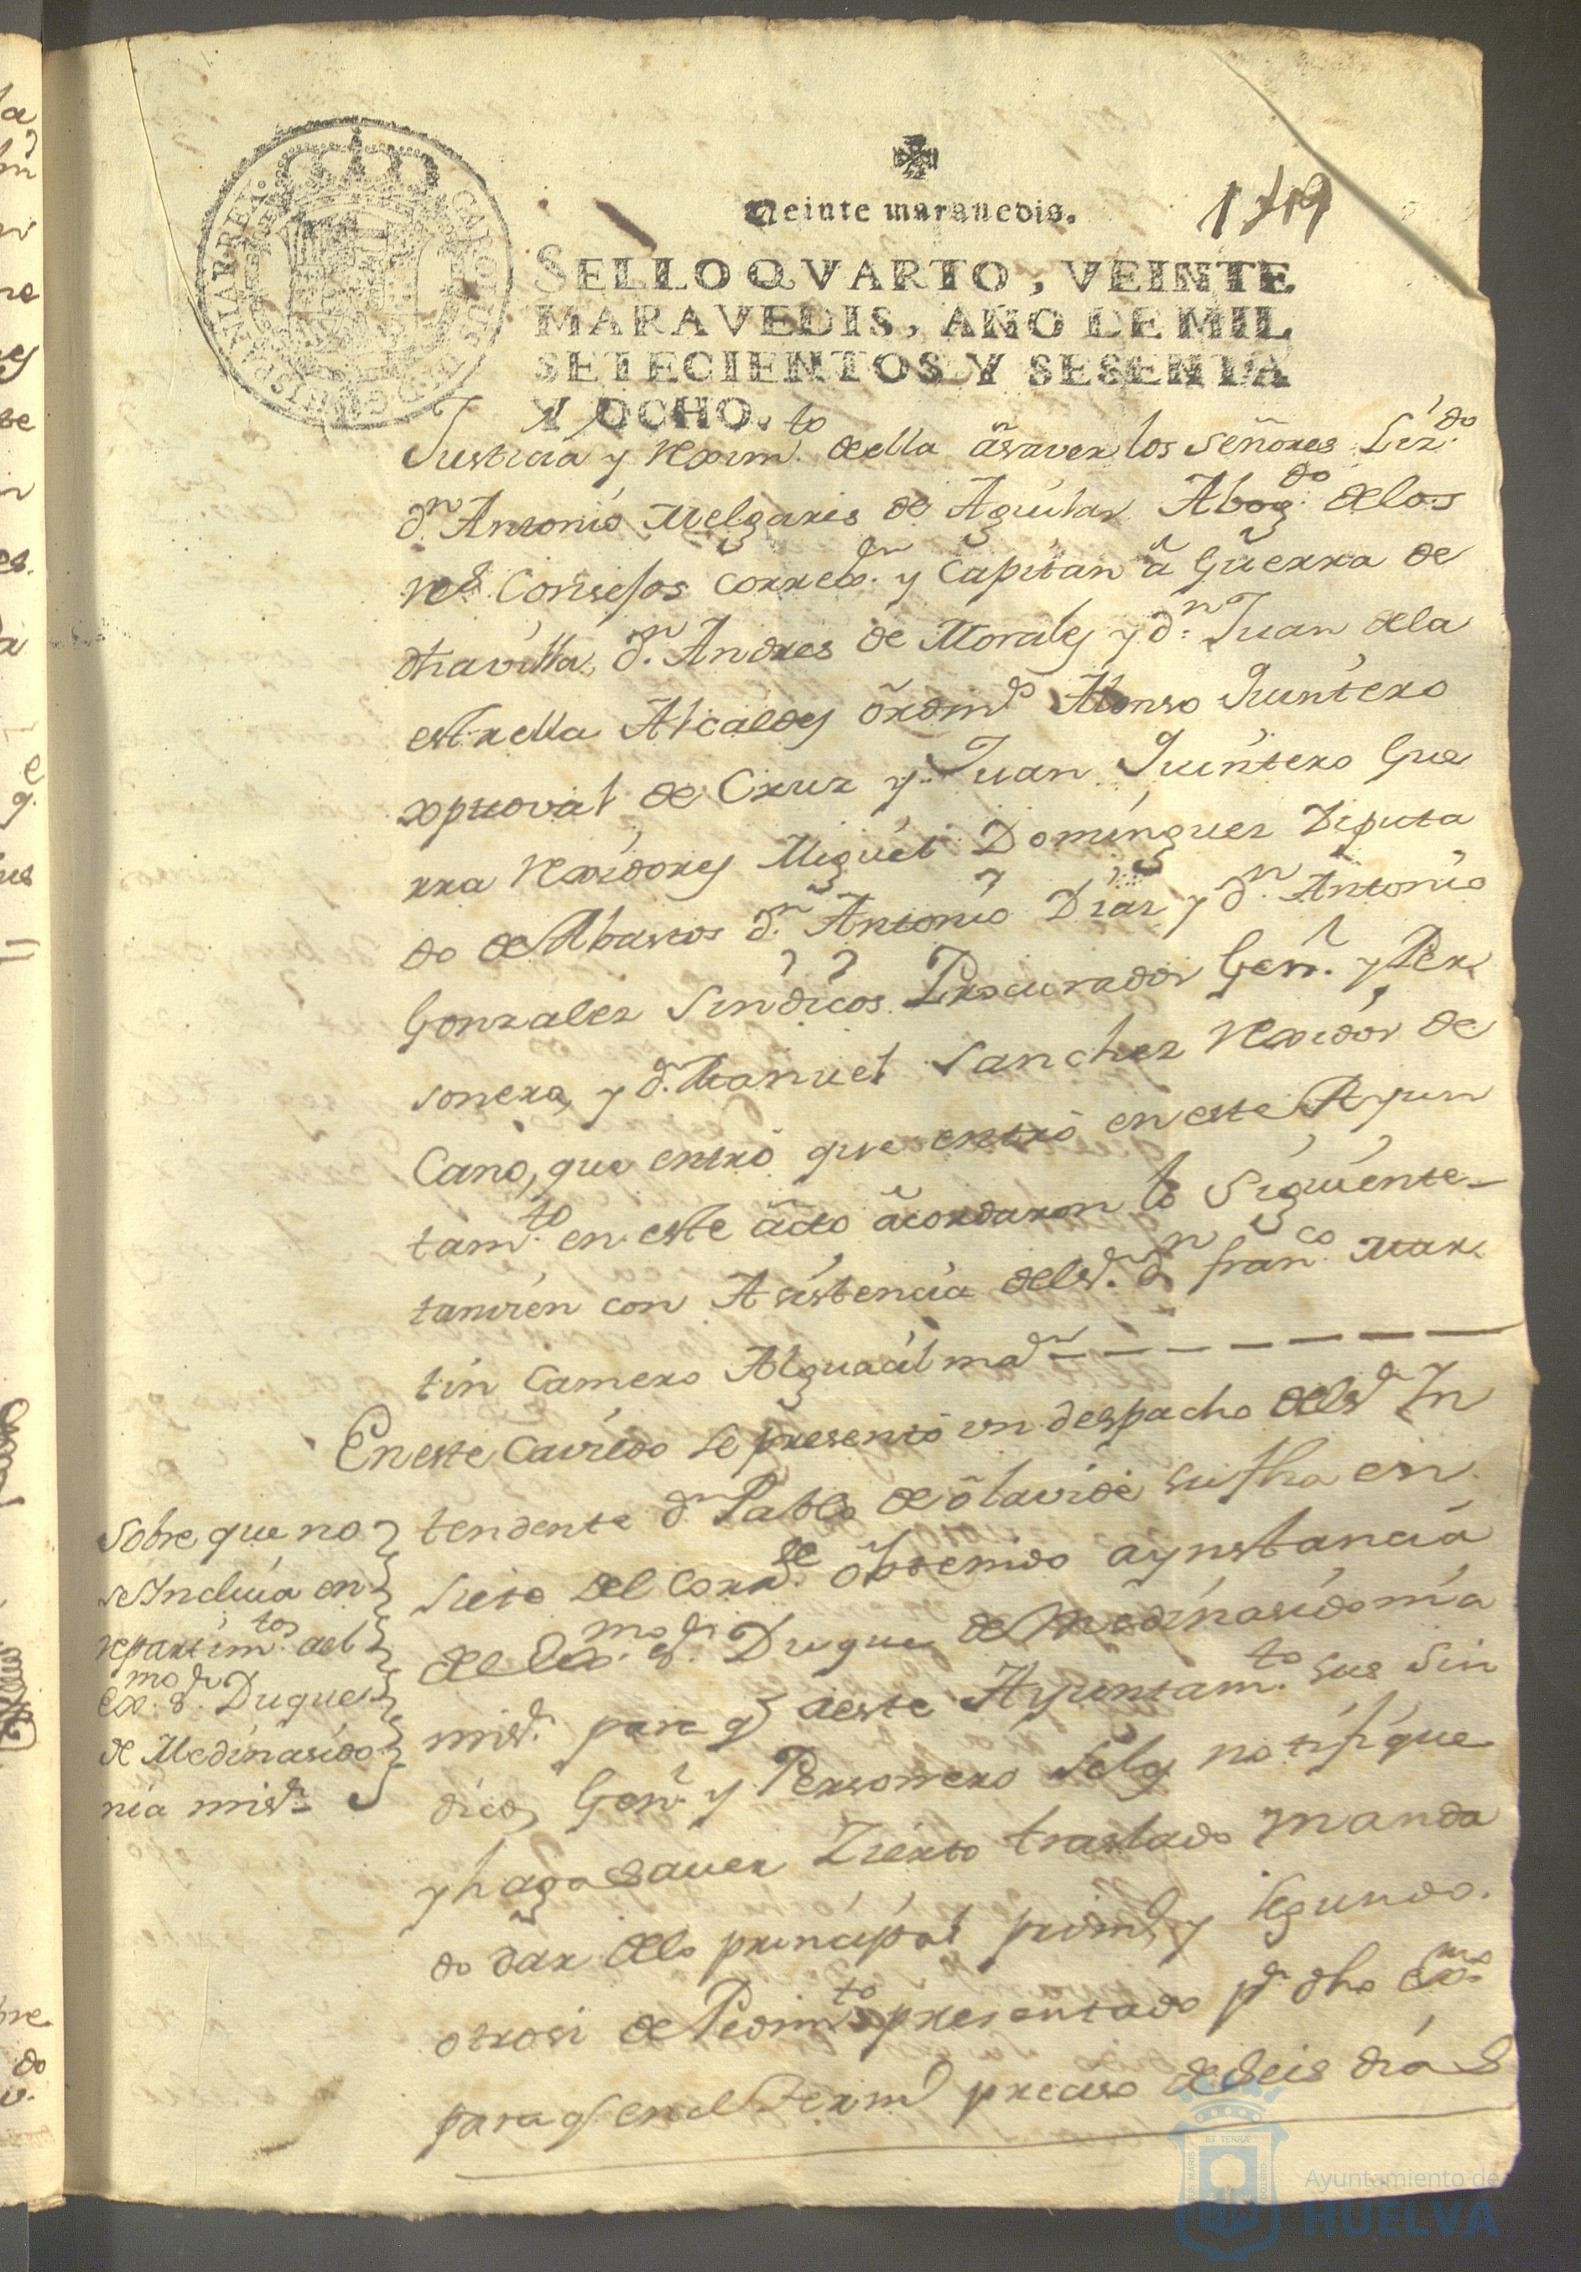 Veinte maravedis.
179
SELLO QVARTO, VEINTE
MARAVEDIS, AÑO DE MIL
SETECIENTOS Y SESENTA
Y OCHO.
CAROLUS III D G HISPANIAR REX
Justicia y Rexim.to della âsaver los señores Liz.do
d.n Antonio Melgarejo de Aguilar Abog.do delos
R.s Consejos Correx.or y Capitan â Guerra de
dha villa, d.n Andres de Morales y d.n Juan dela
estrella Alcaldes ôrdin.s Alonso Quintero
xptoval de Cruz y Juan Quintero Gue
rra Rexidores Miguel Dominguez Diputa
do de Abastos d.n Antonio Diaz y d.n Antonio
Gonzalez Sindicos Procurador Gen.l y Per
sonero, y d.n Manuel Sanchez Rexidor de
Cano, que entró que entró en este Ayun
tam.to en este âcto âcordaron lo siguiente
tanvien con Asistencia del s.r d.n fran.co Mar
tin Camero Alguacil ma.r
En este Cavildo se presentó vn despacho del s.r In
tendente d.n Pablo de ôlavide su fha en
siete del corr.te ôbtenido aynstancia
del ex.mo s.r Duque de Medinasidonia
mi s.r para q aeste Ayuntam.to sus Sin
dicos Gen.l y Personero Selq notifique
y haga saver Zierto traslado manda
do dar delo principal prim.o y segundo
otrosi de Pedim.to presentado p.r dho ex.mo
para q en el term.o preciso de seis dias
Sobre que no
se Incluia en
repartim.tos del
ex.mo s.r Duque
de Medinasido
nia mi s.r
Ayuntamiento de
HUELVA